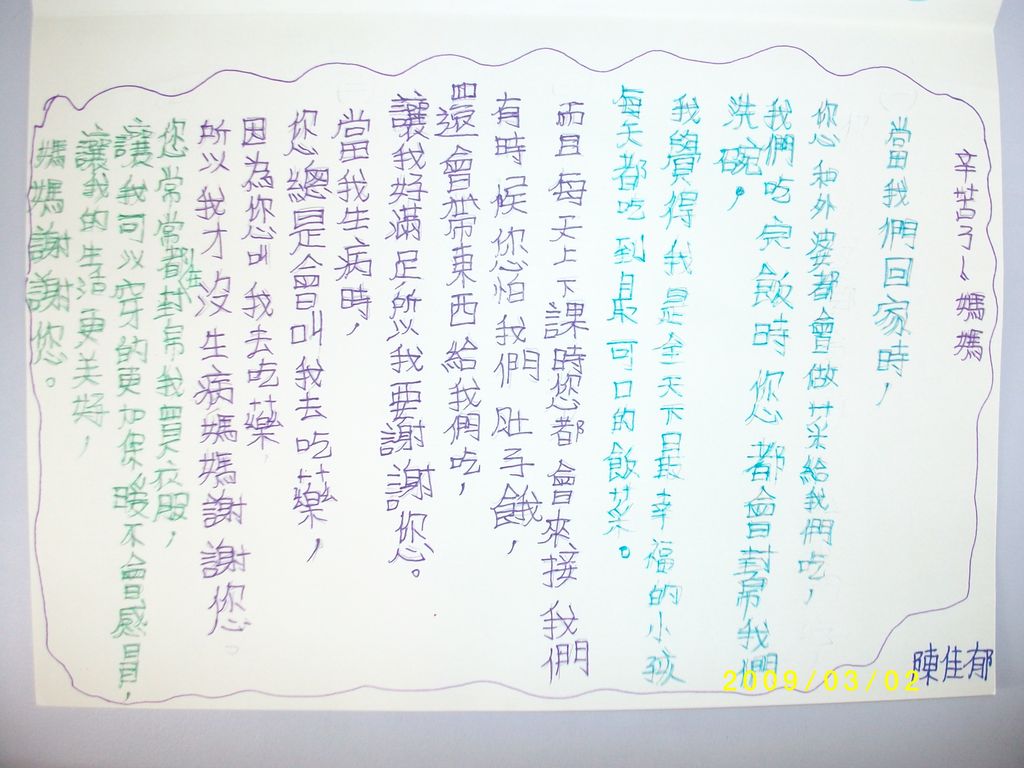 辛苦了~媽媽
當我們回家時，
您和外婆都會做菜給我們吃，
我們吃完飯時您都會幫我們
洗碗，
我覺得我是全天下最幸福的小孩
每天都吃到最可口的飯菜。
而且每天上下課時您都會來接我們
有時候您怕我們肚子餓，
還會帶東西給我們吃，
讓我好滿足所以我要謝謝您。
當我生病時，
您總是會叫我去吃藥，
因為您叫我去吃藥，
所以我才沒生病媽媽謝謝您。
您常常都幫我買衣服，
讓我可以穿的更加保暖不會感冒，
讓我的生活更美好，
媽媽謝謝您。
陳佳郁
2009/03/02